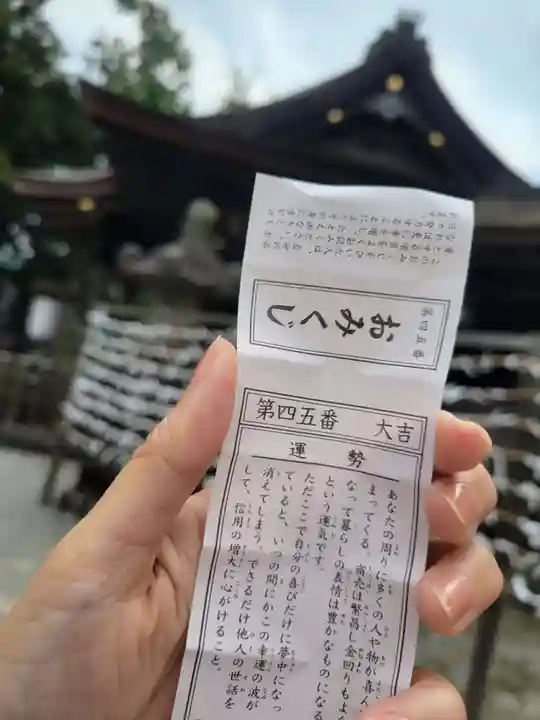 第四五番
おみくじ
第四五番 大吉
運勢
あなたの周りに多くの人や物が喜ん
まってくる。商売は繁昌し金回りもよ
なって暮らしの表情は豊かなものになる
という運気です。
ただここで自分の喜びだけに夢中になっ
ていると、いつの間にかこの幸運の波が
消えてしまう。できるだけ他人の世話を
して、信用の増大に心がけること。